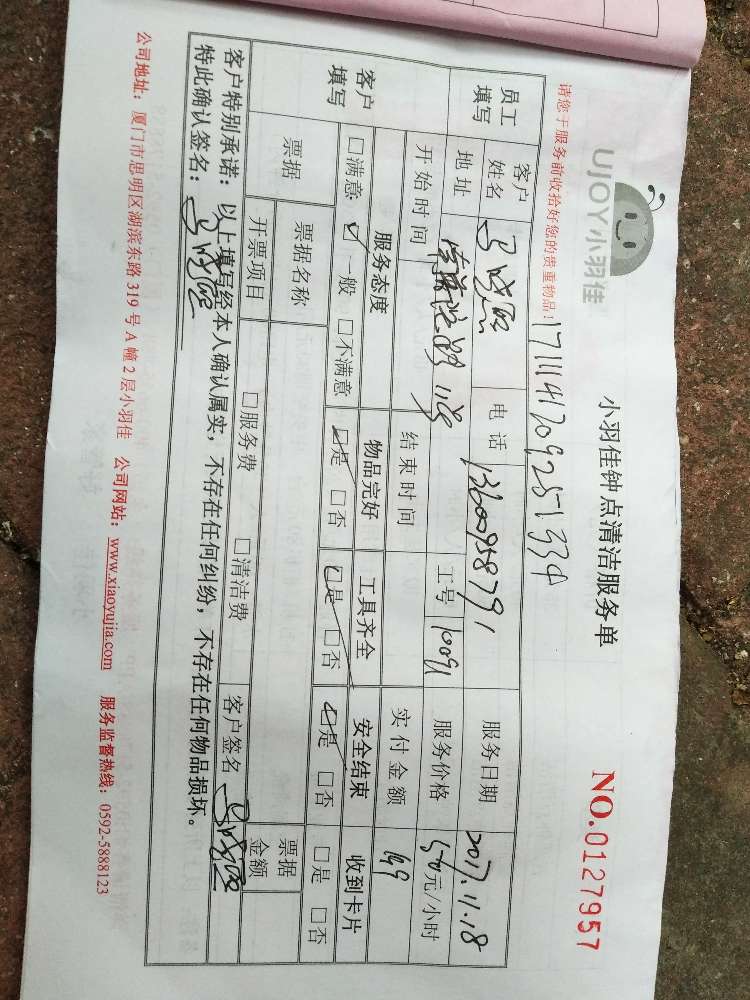 UJOY小羽佳
小羽佳钟点清洁服务单
NO.0127957
请您于服务前收拾好您的贵重物品!
1711141209251334
员工填写
客户姓名
电话
13600958791
服务日期 2017.11.18
地址
工号 10091
服务价格 50元/小时
开始时间
结束时间
实付金额 149
客户填写
服务态度 物品完好 工具齐全 安全结束 收到卡片
□满意 ☑一般 □不满意 ☑是 □否 ☑是 □否 ☑是 □否 □是 □否
票据
票据名称
票据金额
开票项目 □服务费 □清洁费 客户签名
客户特别承诺：以上填写经本人确认属实，不存在任何纠纷，不存在任何物品损坏。
特此确认签名：
公司地址：厦门市思明区湖滨东路 319 号 A 幢 2 层小羽佳 公司网站：www.xiaoyujia.com 服务监督热线：0592-5888123